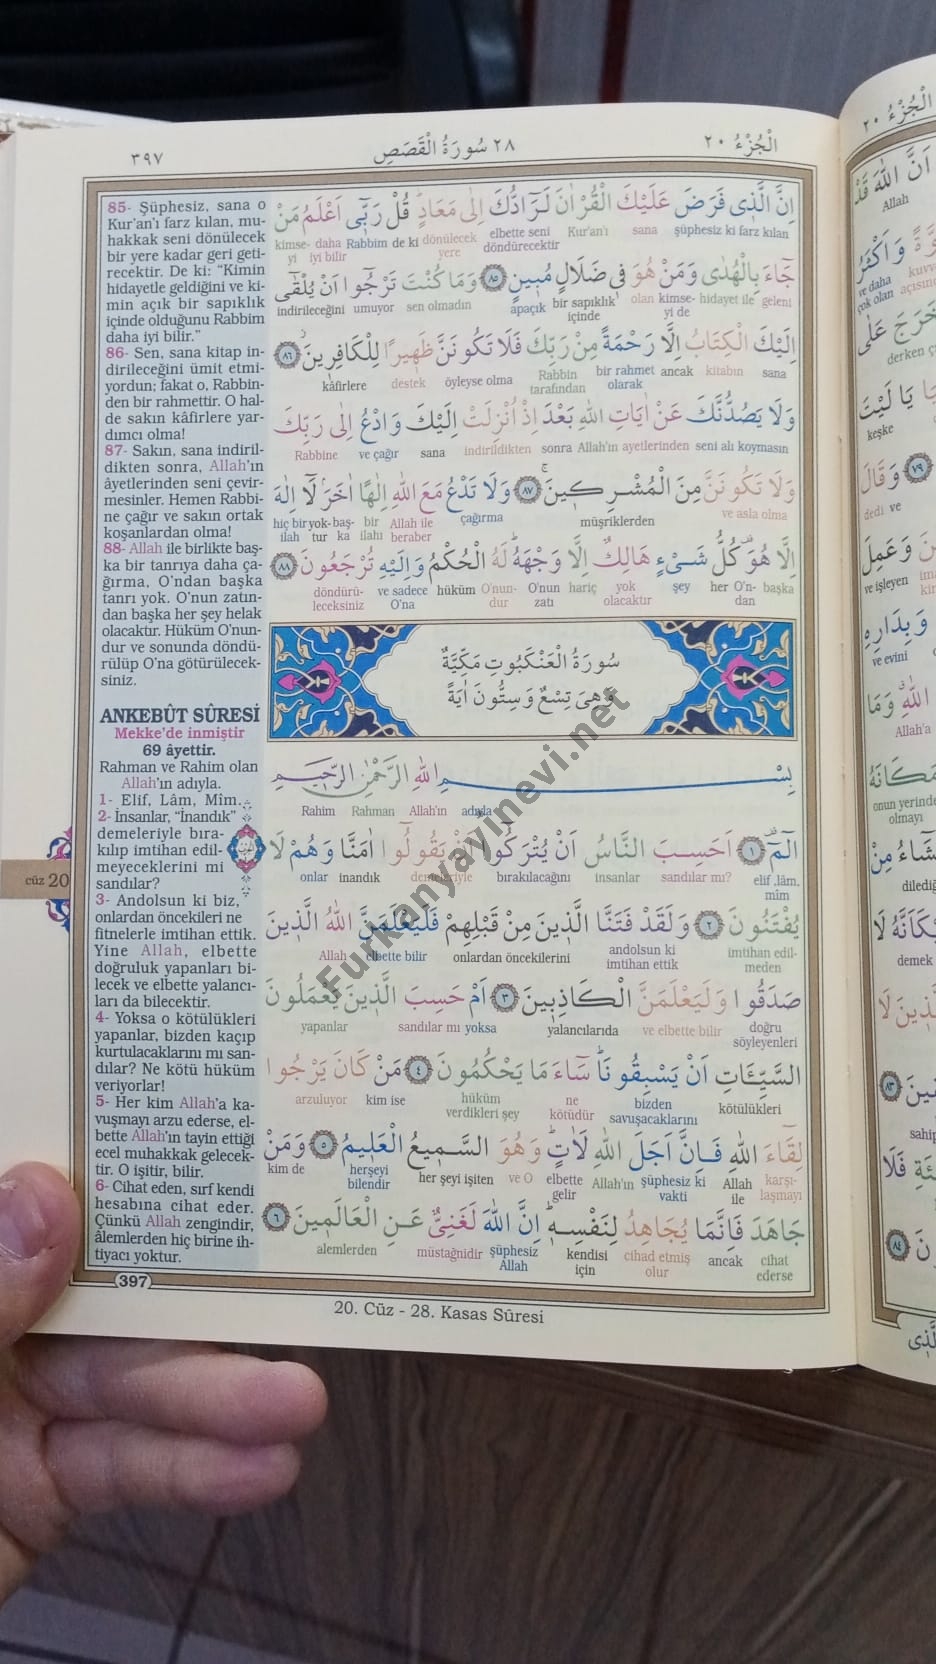 ٣٩٧
٢٨ سُورَةُ الْقَصَصِ
اَلْجُزْءُ ٢٠
85- Şüphesiz, sana o
Kur'an'ı farz kılan, mu-
hakkak seni dönülecek
bir yere kadar geri geti-
recektir. De ki: “Kimin
hidayetle geldiğini ve ki-
min açık bir sapıklık
içinde olduğunu Rabbim
daha iyi bilir.”
86- Sen, sana kitap in-
dirileceğini ümit etmi-
yordun; fakat o, Rabbin-
den bir rahmettir. O hal-
de sakın kâfirlere yar-
dımcı olma!
87- Sakın, sana indiril-
dikten sonra, Allah'ın
âyetlerinden seni çevir-
mesinler. Hemen Rabbi-
ne çağır ve sakın ortak
koşanlardan olma!
88- Allah ile birlikte baş-
ka bir tanrıya daha ça-
ğırma, O'ndan başka
tanrı yok. O'nun zatın-
dan başka her şey helak
olacaktır. Hüküm O'nun-
dur ve sonunda döndü-
rülüp O'na götürülecek-
siniz.
ANKEBÛT SÛRESİ
Mekke'de inmiştir
69 âyettir.
Rahman ve Rahim olan
Allah'ın adıyla.
1- Elif, Lâm, Mîm.
2- İnsanlar, “İnandık”
demeleriyle bıra-
kılıp imtihan edil-
meyeceklerini mi
sandılar?
3- Andolsun ki biz,
onlardan öncekileri ne
fitnelerle imtihan ettik.
Yine Allah, elbette
doğruluk yapanları bi-
lecek ve elbette yalancı-
ları da bilecektir.
4- Yoksa o kötülükleri
yapanlar, bizden kaçıp
kurtulacaklarını mı san-
dılar? Ne kötü hüküm
veriyorlar!
5- Her kim Allah'a ka-
vuşmayı arzu ederse, el-
bette Allah'ın tayin ettiği
ecel muhakkak gelecek-
tir. O işitir, bilir.
6- Cihat eden, sırf kendi
hesabına cihat eder.
Çünkü Allah zengindir,
âlemlerden hiç birine ih-
tiyacı yoktur.
اِنَّ الَّذٖى فَرَضَ عَلَيْكَ الْقُرْاٰنَ لَرَٓادُّكَ اِلٰى مَعَادٍ قُلْ رَبّٖٓى اَعْلَمُ مَنْ
şüphesiz ki farz kılan sana Kur'an'ı elbette seni döndürecektir dönülecek yere de ki Rabbim daha iyi bilir kimse-yi
جَٓاءَ بِالْهُدٰى وَمَنْ هُوَ فٖى ضَلَالٍ مُبٖينٍ ٨٥ وَمَا كُنْتَ تَرْجُٓوا اَنْ يُلْقٰٓى
geleni hidayet ile kimse-yi de olan bir sapıklık içinde apaçık sen olmadın umuyor indirileceğini
اِلَيْكَ الْكِتَابُ اِلَّا رَحْمَةً مِنْ رَبِّكَ فَلَا تَكُونَنَّ ظَهٖيرًا لِلْكَافِرٖينَ ٨٦
sana kitabın ancak bir rahmet olarak Rabbin tarafından öyleyse olma destek kâfirlere
وَلَا يَصُدُّنَّكَ عَنْ اٰيَاتِ اللّٰهِ بَعْدَ اِذْ اُنْزِلَتْ اِلَيْكَ وَادْعُ اِلٰى رَبِّكَ
seni alı koymasın Allah'ın ayetlerinden sonra indirildikten sana ve çağır Rabbine
وَلَا تَكُونَنَّ مِنَ الْمُشْرِكٖينَ ٨٧ وَلَا تَدْعُ مَعَ اللّٰهِ اِلٰهًا اٰخَرَ لَٓا اِلٰهَ
ve asla olma müşriklerden çağırma Allah ile beraber bir ilahı baş-ka yok-tur hiç bir ilah
اِلَّا هُوَ كُلُّ شَیْءٍ هَالِكٌ اِلَّا وَجْهَهُ لَهُ الْحُكْمُ وَاِلَيْهِ تُرْجَعُونَ ٨٨
başka O'n-dan her şey yok olacaktır hariç O'nun zatı O'nun-dur hüküm ve sadece O'na döndürü-leceksiniz
سُورَةُ الْعَنْكَبُوتِ مَكِّيَّةٌ
وَهِىَ تِسْعٌ وَسِتُّونَ اٰيَةً
بِسْمِ اللّٰهِ الرَّحْمٰنِ الرَّحٖيمِ
adıyla Allah'ın Rahman Rahim
الٓمٓ ١ اَحَسِبَ النَّاسُ اَنْ يُتْرَكُٓوا اَنْ يَقُولُٓوا اٰمَنَّا وَهُمْ لَا
elif ,lâm, mîm sandılar mı? insanlar bırakılacağını demeleriyle inandık onlar
يُفْتَنُونَ ٢ وَلَقَدْ فَتَنَّا الَّذٖينَ مِنْ قَبْلِهِمْ فَلَيَعْلَمَنَّ اللّٰهُ الَّذٖينَ
imtihan edil-meden andolsun ki imtihan ettik onlardan öncekilerini elbette bilir Allah
صَدَقُوا وَلَيَعْلَمَنَّ الْكَاذِبٖينَ ٣ اَمْ حَسِبَ الَّذٖينَ يَعْمَلُونَ
doğru söyleyenleri ve elbette bilir yalancılarıda yoksa sandılar mı yapanlar
السَّيِّـَٔاتِ اَنْ يَسْبِقُونَا سَٓاءَ مَا يَحْكُمُونَ ٤ مَنْ كَانَ يَرْجُوا
kötülükleri bizden savuşacaklarını ne kötüdür hüküm verdikleri şey kim ise arzuluyor
لِقَٓاءَ اللّٰهِ فَاِنَّ اَجَلَ اللّٰهِ لَاٰتٍ وَهُوَ السَّمٖيعُ الْعَلٖيمُ ٥ وَمَنْ
karşı-laşmayı Allah ile şüphesiz ki vakti Allah'ın elbette gelir ve O her şeyi işiten herşeyi bilendir kim de
جَاهَدَ فَاِنَّمَا يُجَاهِدُ لِنَفْسِهٖ اِنَّ اللّٰهَ لَغَنِىٌّ عَنِ الْعَالَمٖينَ ٦
cihat ederse ancak cihad etmiş olur kendisi için şüphesiz Allah müstağnidir alemlerden
cüz 20
397
20. Cüz - 28. Kasas Sûresi
Furkanyayinevi.net
اَلْجُزْءُ ٢٠
اَنَّ اللّٰهَ قَدْ
Allah
وَاَكْثَرُ
ve daha
çok olan
derken
يَا لَيْتَ
keşke
٧٩ وَقَالَ
dedi ve
وَعَمِلَ
ve işleyen
وَبِدَارِهِ
ve evini
اللّٰهِ وَمَا
Allah'a
مَكَانَهُ
onun yerinde
olmayı
demek
٨٣
٨٤